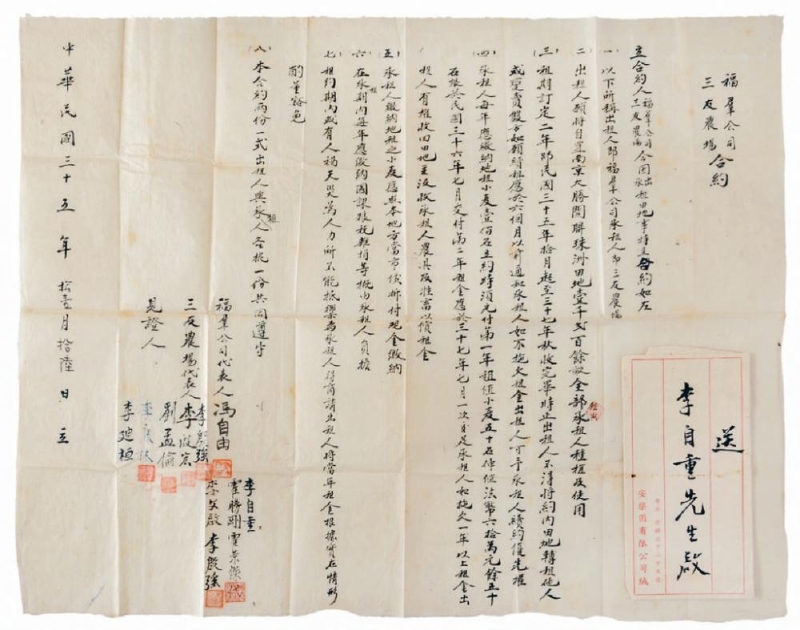 福羣公司
三友農場 合約
立合約人福羣公司三友農場今因出租承租田地事特立合約如左
一 以下所稱出租人即福羣公司承租人即三友農場
二 出租人願將自置南京大勝關聯珠洲田地壹千弍百餘畝全部承租人種植及使用
三 租期訂定二年即民國三十五年拾月起至三十七年秋收完畢時止出租人不得將約內田地轉租他人
或變賣
知承租人如不拖欠租金出租人可予承租人續約優先權
四 承租人每年應繳納地租小麥壹佰石立約時須先付第一年租組小麥五十石作價法幣六拾萬元餘五十
石於民國三十六年七月交付第二年租金應於三十七年七月一次付足承租人如拖欠一年以上租金出
租人有權收回田地並沒收承租人農具及牲畜以償租金
五 承租人繳納地租之小麥應照本地方當市價折付現金繳納
六 在承租期內每年應繳納國課政稅雜捐等概由承租人負擔
七 租約期內或有人禍天災為人力所不能抵禦者承租人得商請出租人將當年租金根據實在情形
酌量豁免
八 本合約兩份一式出租人與承租人各執一份共同遵守
福羣公司代表人 馮自由
三友農場代表人
李自重
劉孟倫
見證人
李建極
中華民國三十五年拾壹月拾陸日立
送
李自重先生啟
安樂園有限公司緘